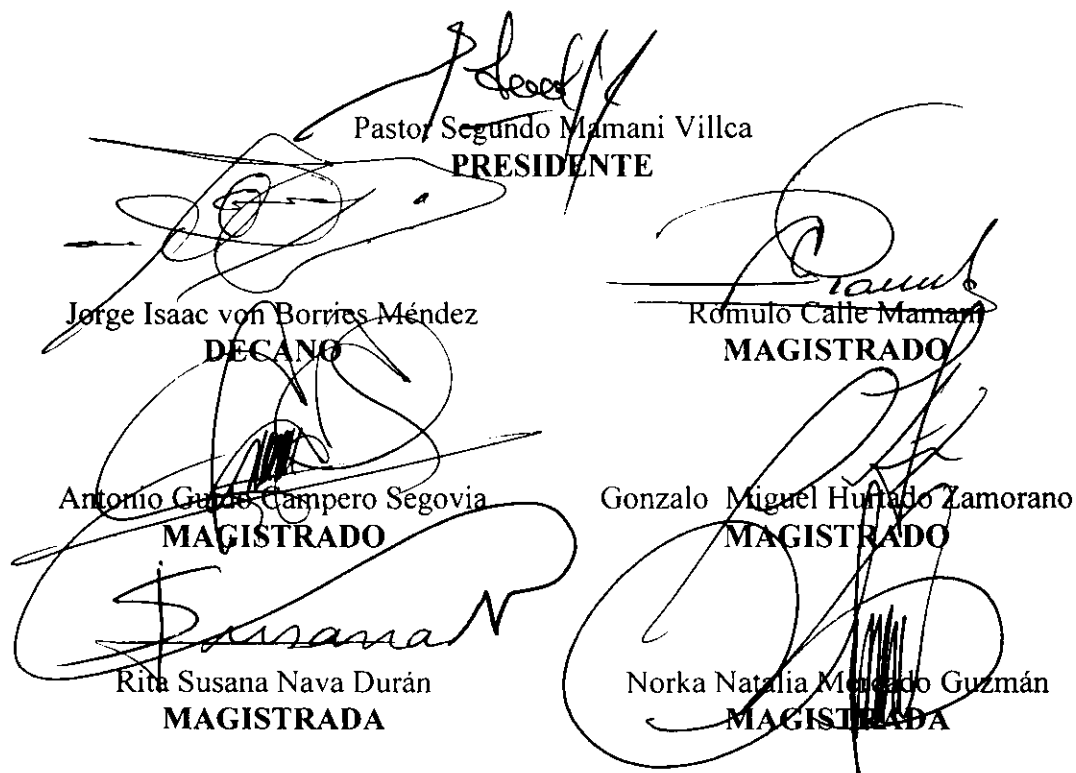 Pastor Segundo Mamani Villca
PRESIDENTE
Jorge Isaac von Borries Méndez
DECANO
Romulo Calle Mamani
MAGISTRADO
Antonio Guido Campero Segovia
MAGISTRADO
Gonzalo Miguel Hurtado Zamorano
MAGISTRADO
Susana
Rita Susana Nava Durán
MAGISTRADA
Norka Natalia Mercado Guzmán
MAGISTRADA